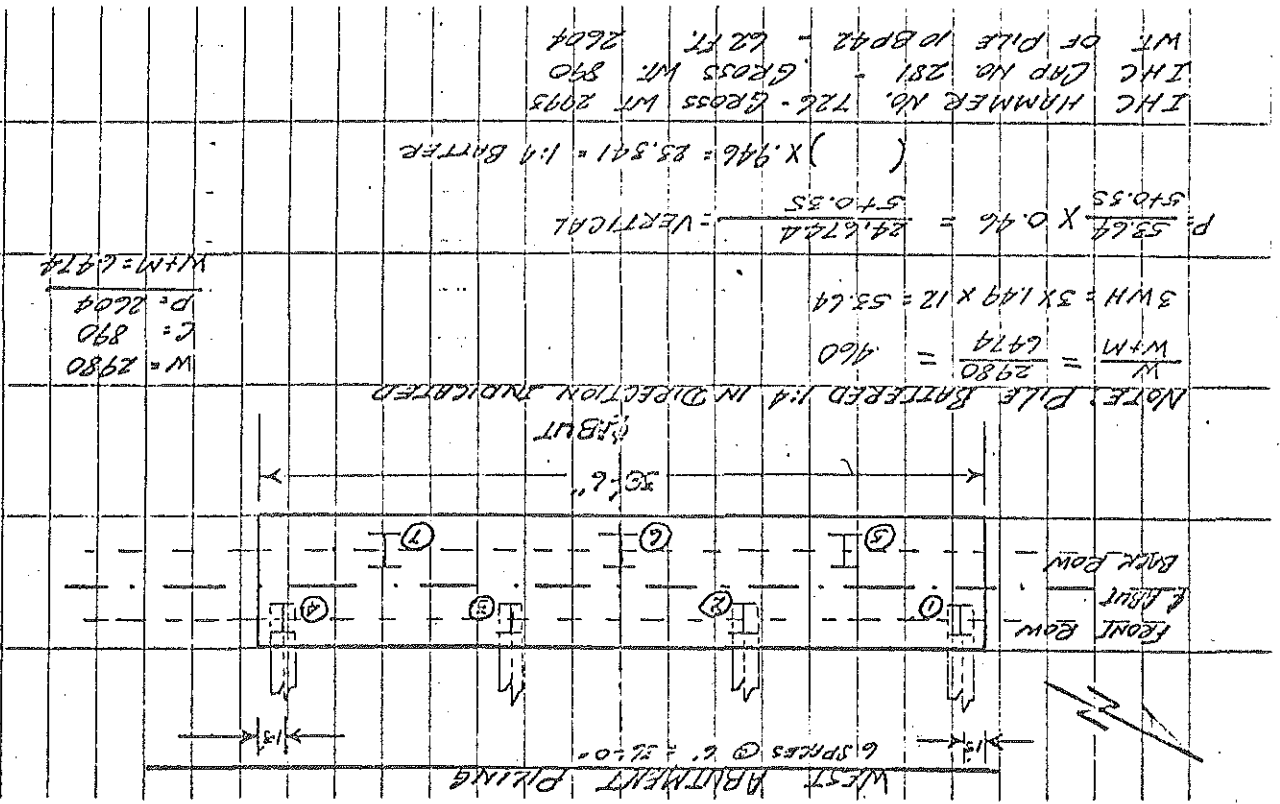 WEST ABUTMENT PILING
6 SPACES @ 6' = 36'-0"
1'-3
1'-3
FRONT ROW
℄ ABUT
BACK ROW
1 2 3 4
5 6 7
38'-6"
℄ ABUT
NOTE: PILE BATTERED 1:4 IN DIRECTION INDICATED
W/W+M = 2980/6474 = .460
3WH = 3 X 1.49 X 12 = 53.64
W = 2980
C = 890
P = 2604
W+M = 6474
P = 53.64/S+0.35 X 0.46 = 24.6744/S+0.35 = VERTICAL
( ) X .946 = 23.341 = 1:4 BATTER
IHC HAMMER NO. 726 - GROSS WT
IHC CAP NO. 281 - GROSS WT. 890
WT. OF PILE 10BP42 - 62 FT. 2604